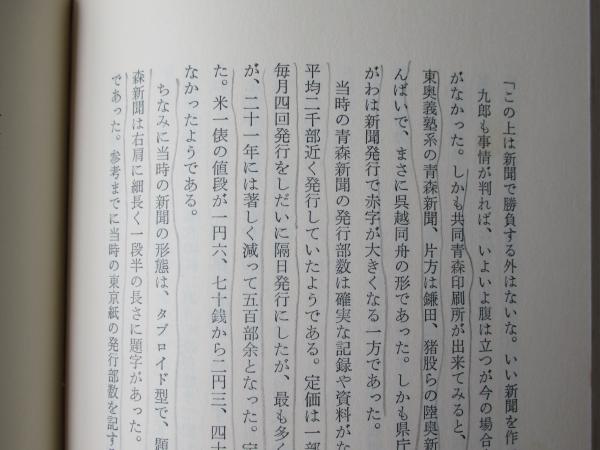 「この上は新聞で勝負する外はないな。いい新聞を作
九郎も事情が判れば、いよいよ腹は立つが今の場合
がなかった。しかも共同青森印刷所が出来てみると、
東奥義塾系の青森新聞、片方は鎌田、猪股らの陸奥新
んばいで、まさに呉越同舟の形であった。しかも県庁
がわは新聞発行で赤字が大きくなる一方であった。
当時の青森新聞の発行部数は確実な記録や資料がな
平均二千部近く発行していたようである。定価は一部
毎月四回発行をしだいに隔日発行にしたが、最も多く
が、二十一年には著しく減って五百部余となった。定
た。米一俵の値段が一円六、七十銭から二円三、四十
なかったようである。
ちなみに当時の新聞の形態は、タブロイド型で、題
森新聞は右肩に細長く一段半の長さに題字があった。
であった。参考までに当時の東京紙の発行部数を記す